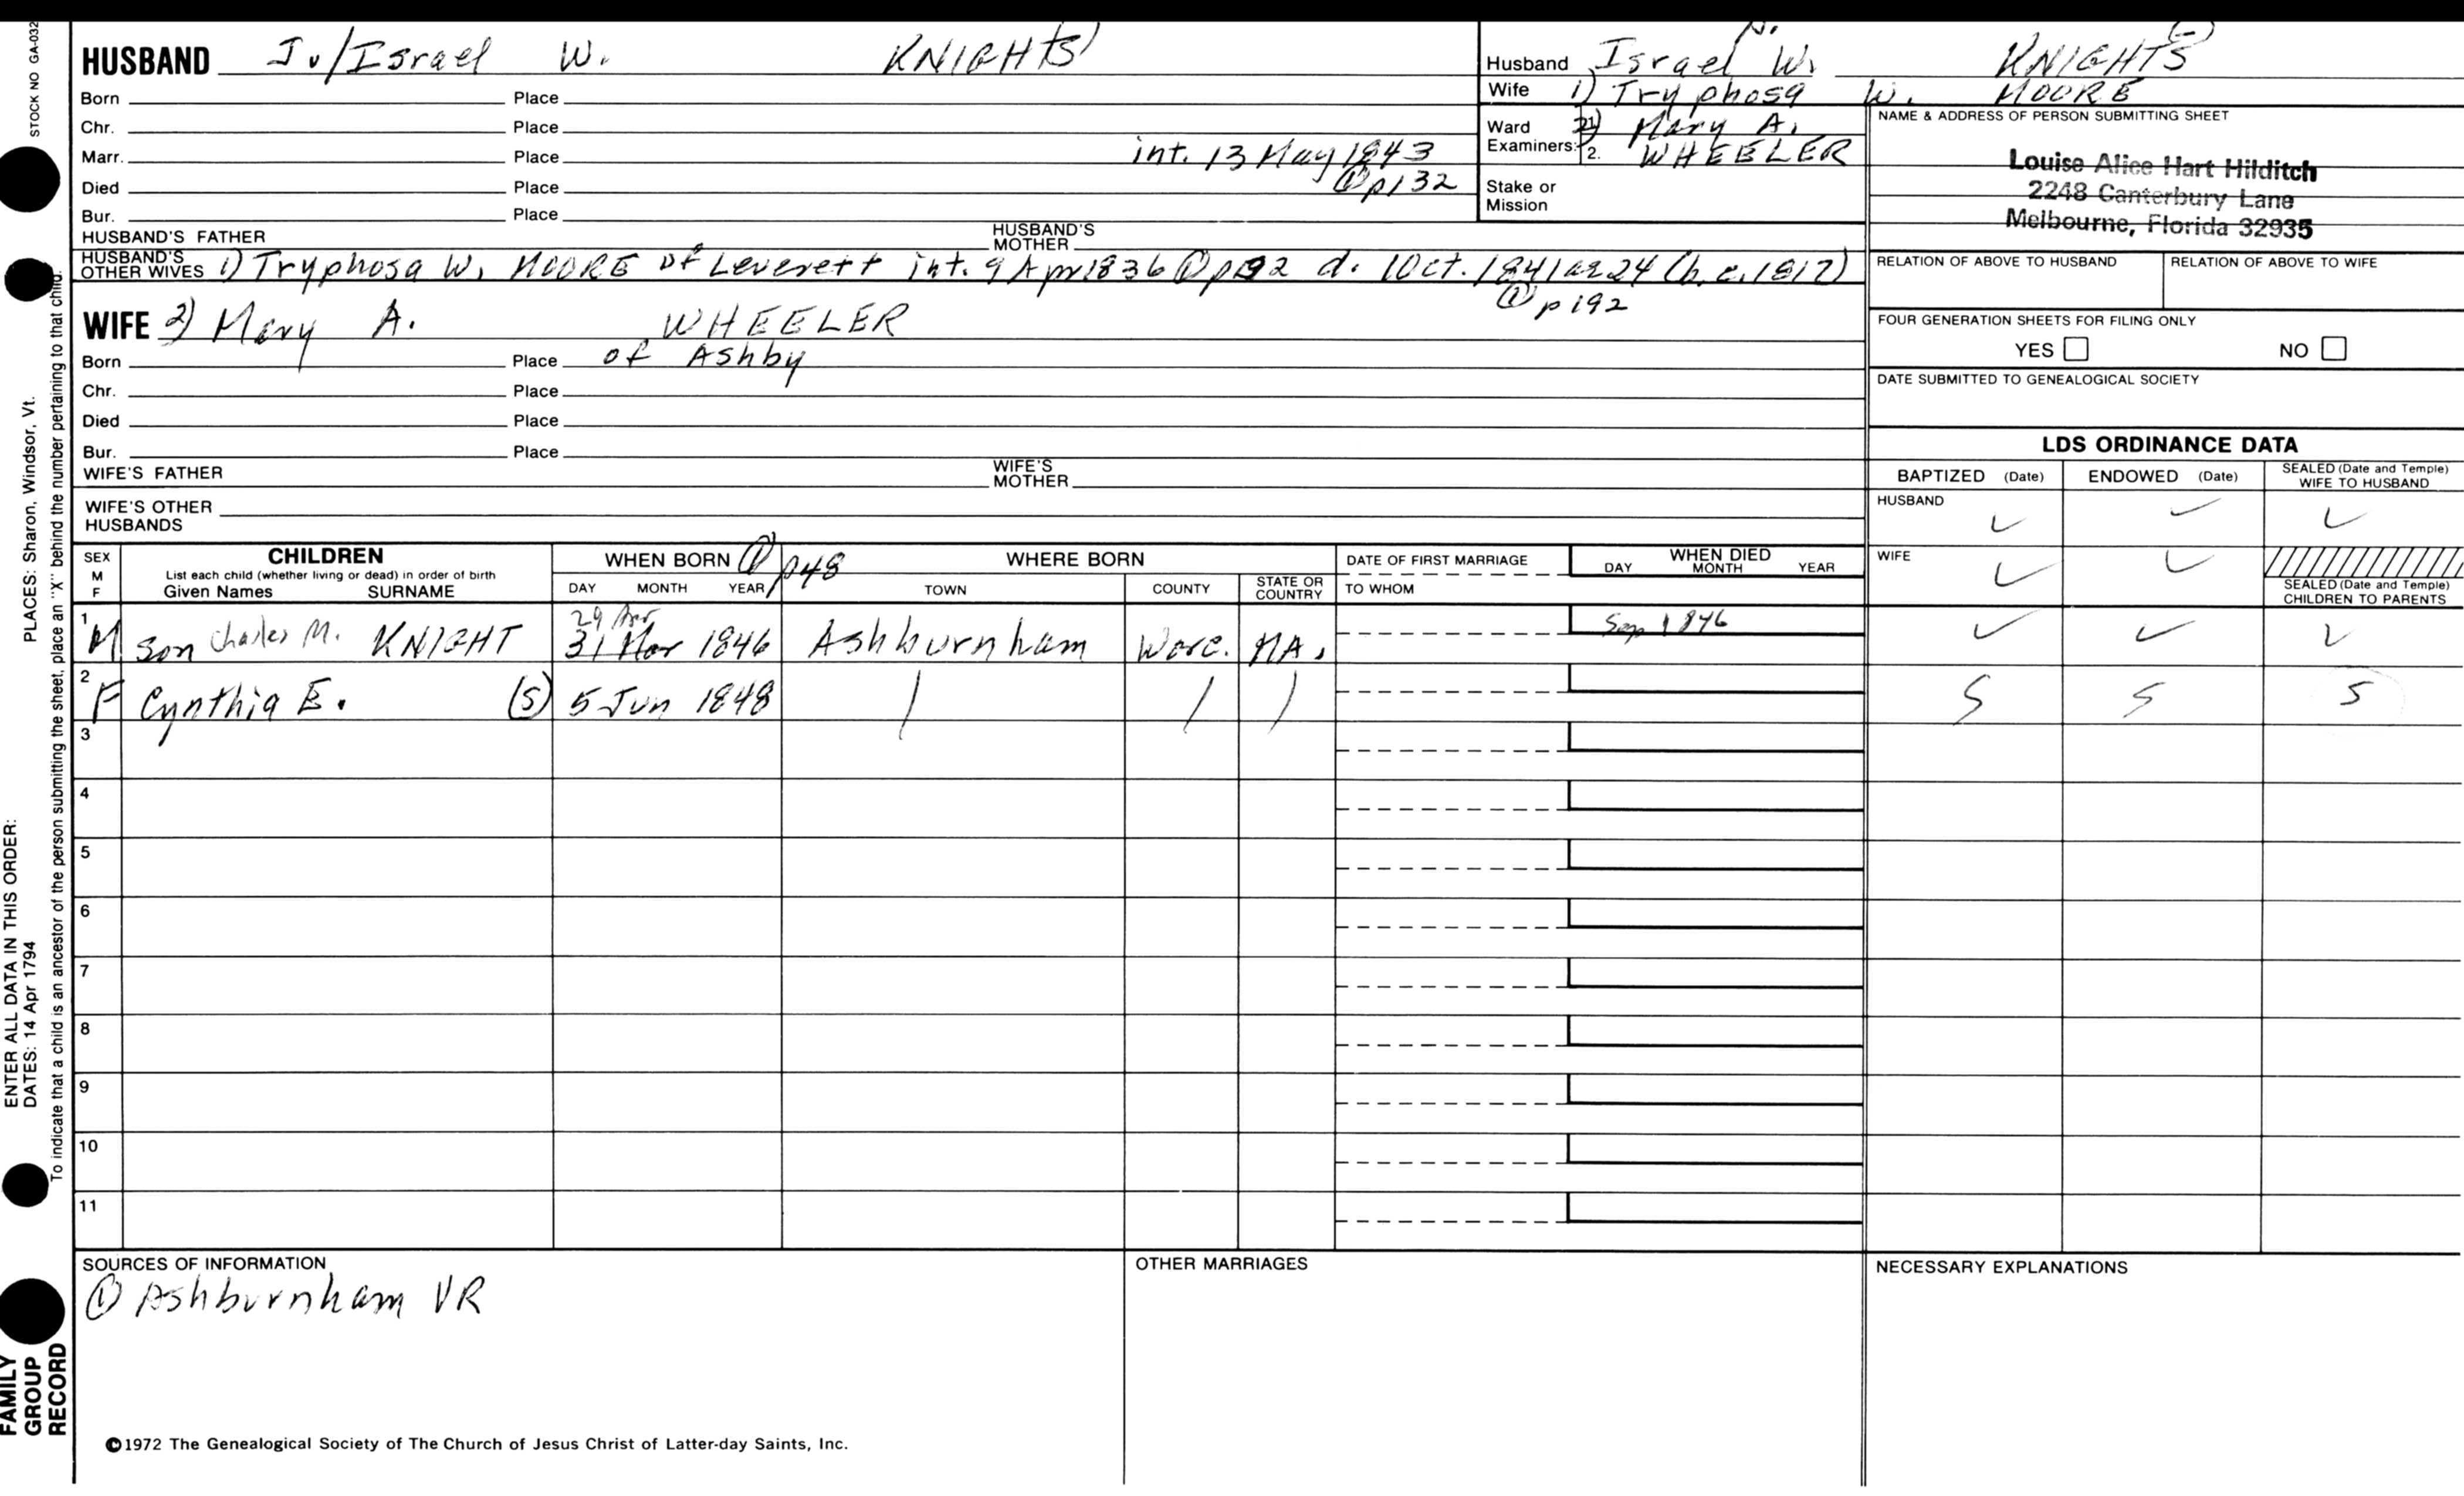 STOCK NO GA-032
PLACES: Sharon, Windsor, Vt.
ENTER ALL DATA IN THIS ORDER:
DATES: 14 Apr 1794
To indicate that a child is an ancestor of the person submitting the sheet, place an "X" behind the number pertaining to that child.
FAMILY
GROUP
RECORD
HUSBAND J./Israel W. KNIGHTS
Born Place
Chr. Place
Marr. Place int. 13 May 1843
Died Place ① p132
Bur. Place
HUSBAND'S FATHER HUSBAND'S MOTHER
HUSBAND'S OTHER WIVES 1) Tryphosa W. MOORE of Leverett int. 9 Apr 1836 ① d. 1 Oct. 1841 ae 24 (b.c. 1817)
① p192
WIFE 2) Mary A. WHEELER
Born Place of Ashby
Chr. Place
Died Place
Bur. Place
WIFE'S FATHER WIFE'S MOTHER
WIFE'S OTHER HUSBANDS
N.
Husband Israel W. KNIGHTS
Wife 1) Tryphosa W. MOORE
Ward 2) Mary A.
Examiners: 2. WHEELER
Stake or Mission
NAME & ADDRESS OF PERSON SUBMITTING SHEET
Louise Alice Hart Hilditch
2248 Canterbury Lane
Melbourne, Florida 32935
RELATION OF ABOVE TO HUSBAND RELATION OF ABOVE TO WIFE
FOUR GENERATION SHEETS FOR FILING ONLY
YES NO
DATE SUBMITTED TO GENEALOGICAL SOCIETY
LDS ORDINANCE DATA
BAPTIZED (Date) ENDOWED (Date) SEALED (Date and Temple) WIFE TO HUSBAND
HUSBAND ✓ ✓ ✓
WIFE ✓ ✓
SEALED (Date and Temple) CHILDREN TO PARENTS
SEX M F
CHILDREN
List each child (whether living or dead) in order of birth
Given Names SURNAME
WHEN BORN ① p48
DAY MONTH YEAR
WHERE BORN
TOWN COUNTY STATE OR COUNTRY
DATE OF FIRST MARRIAGE
TO WHOM
WHEN DIED
DAY MONTH YEAR
29 Apr
1 M son Charles M. KNIGHT 31 Mar 1846 Ashburnham Worc. MA. Sep 1846 ✓ ✓ ✓
2 F Cynthia E. (S) 5 Jun 1848 | / ) S S S
3
4
5
6
7
8
9
10
11
SOURCES OF INFORMATION
① Ashburnham VR
OTHER MARRIAGES
NECESSARY EXPLANATIONS
©1972 The Genealogical Society of The Church of Jesus Christ of Latter-day Saints, Inc.